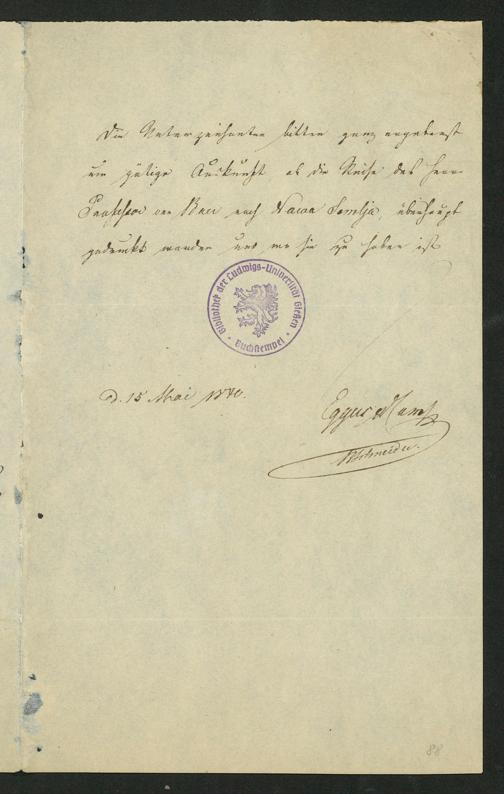 Die Unterzeichneten bitten ganz ergebenst
um gütige Auskunft ob die Reise des Herrn
Professor von Baer nach Nowa Semlja, überhaupt
gedruckt worden und wo sie zu haben ist
Bibliothek der Ludwigs-Universität Gießen
Buchstempel
d. 15 Mai 1840.
Eggers et Comp
Schneider.
88